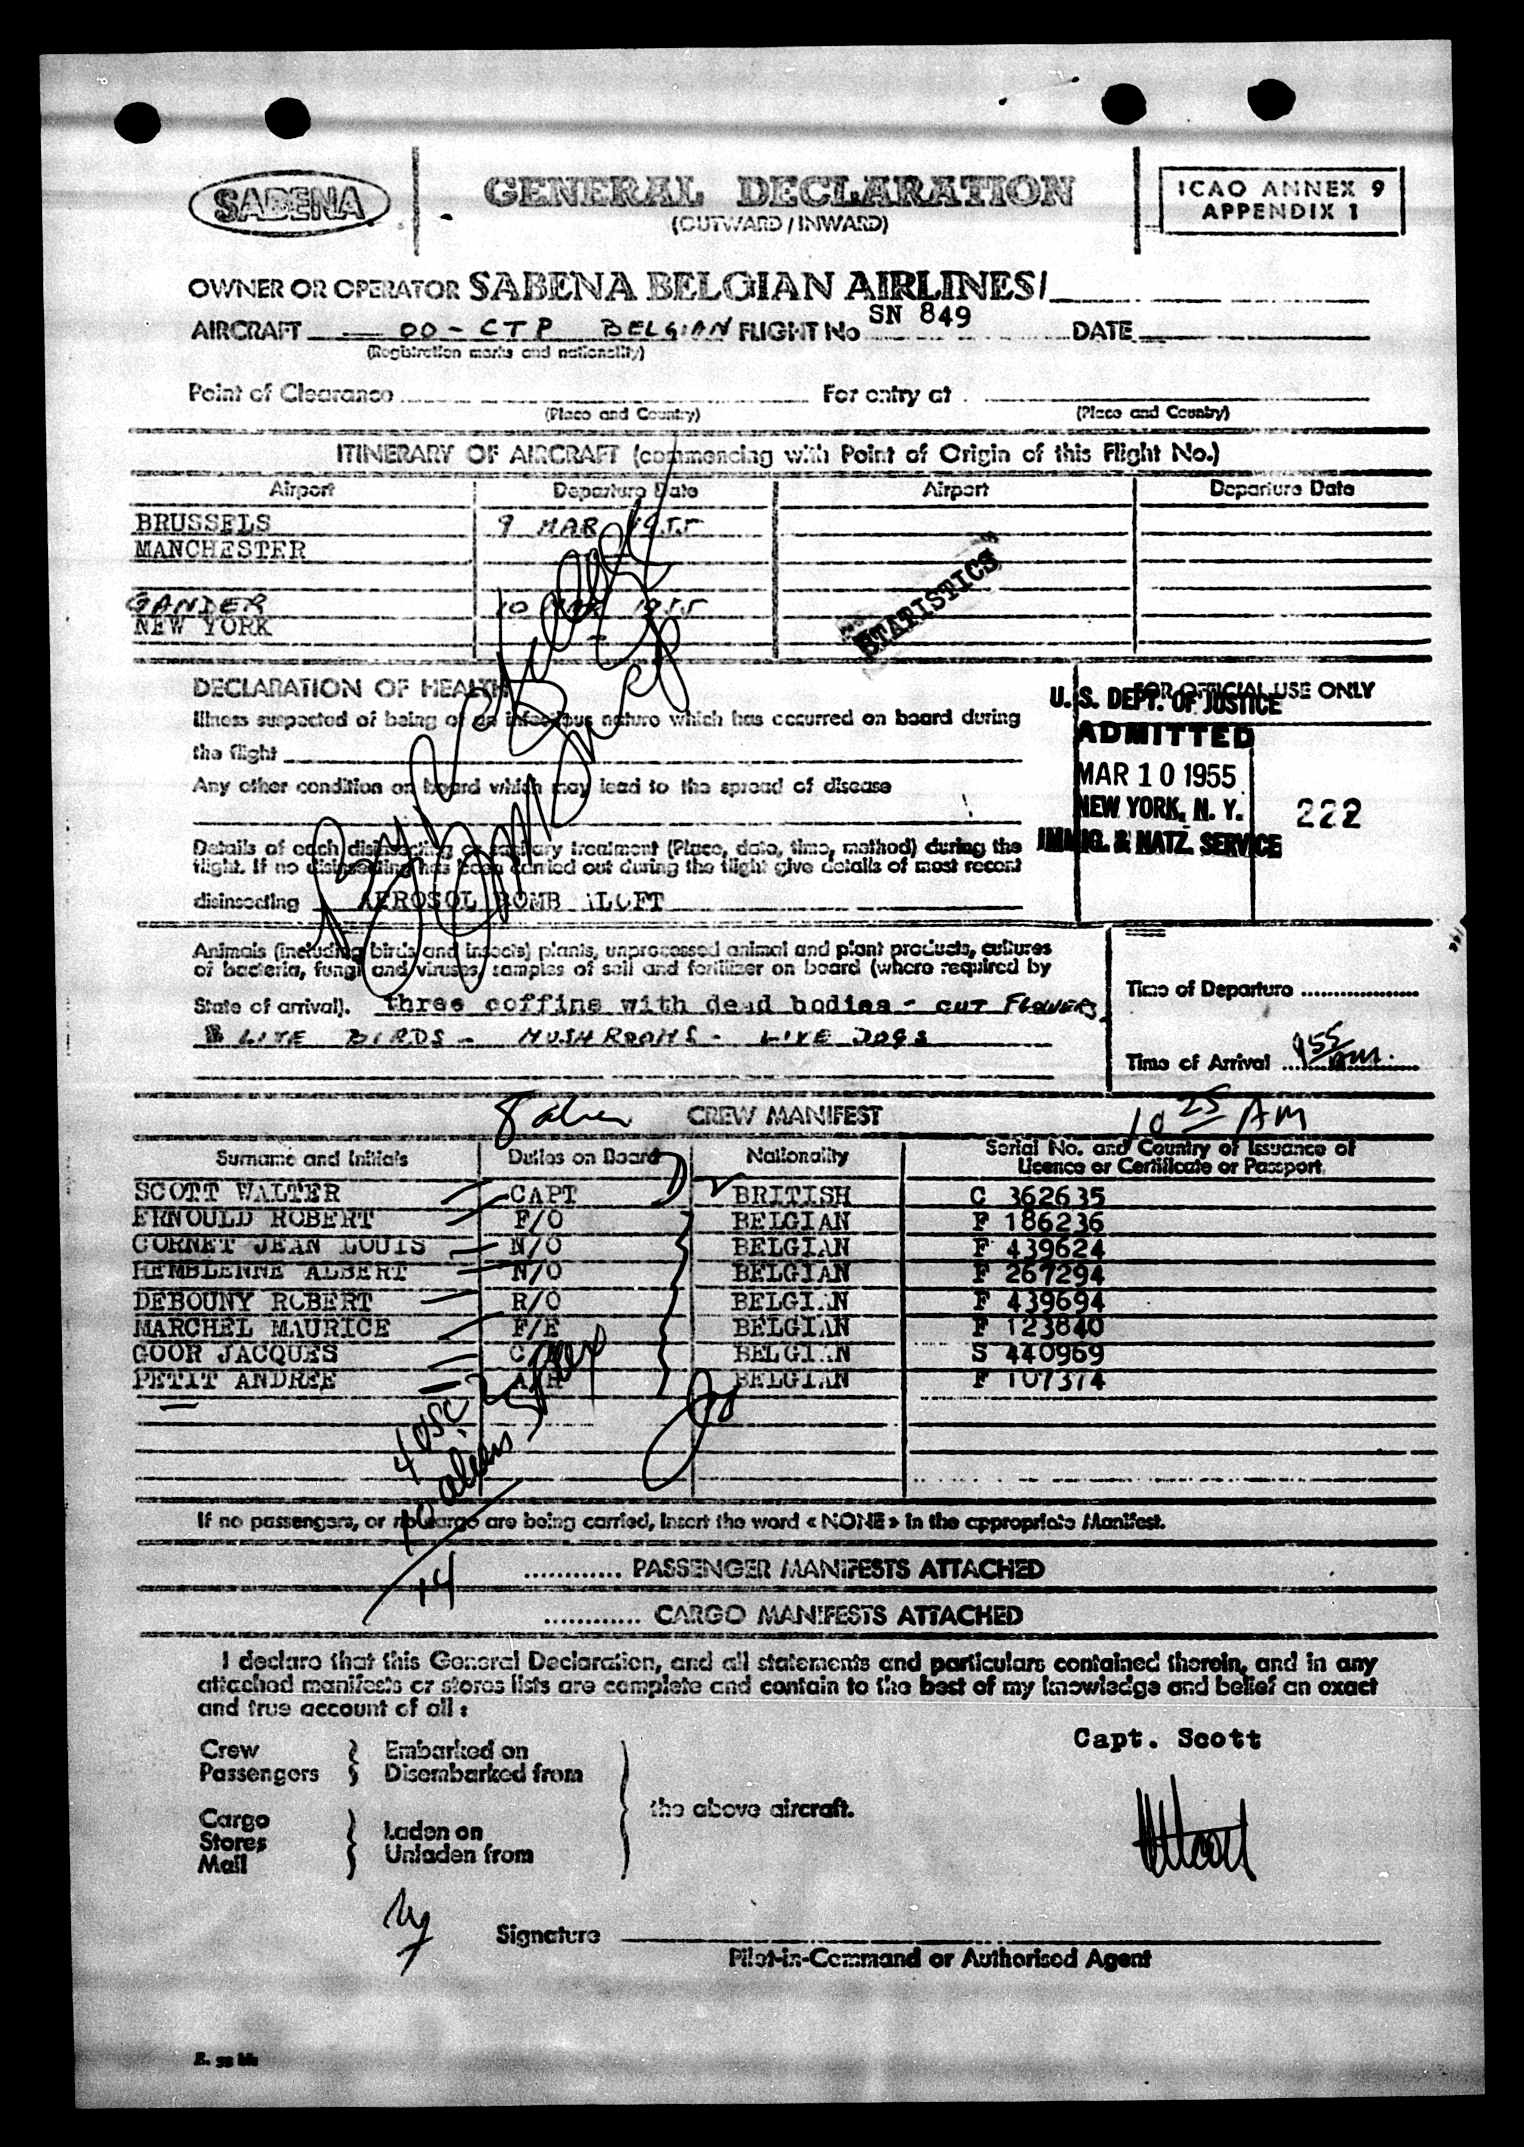 SABENA
GENERAL DECLARATION
(OUTWARD / INWARD)
ICAO ANNEX 9
APPENDIX 1
OWNER OR OPERATOR SABENA BELGIAN AIRLINES/
AIRCRAFT OO-CTP BELGIAN FLIGHT No SN 849 DATE
(Registration marks and nationality)
Point of Clearance For entry at
(Place and Country) (Place and Country)
ITINERARY OF AIRCRAFT (commencing with Point of Origin of this Flight No.)
Airport Departure Date Airport Departure Date
BRUSSELS 9 MAR 1955
MANCHESTER
GANDER 10 MAR 1955
NEW YORK
STATISTICS
DECLARATION OF HEALTH
Illness suspected of being of an infectious nature which has occurred on board during
the flight
Any other condition on board which may lead to the spread of disease
Details of each disinsecting or sanitary treatment (Place, date, time, method) during the
flight. If no disinsecting has been carried out during the flight give details of most recent
disinsecting AEROSOL BOMB ALOFT
FOR OFFICIAL USE ONLY
U. S. DEPT. OF JUSTICE
ADMITTED
MAR 10 1955
NEW YORK, N. Y.
IMMIG. & NATZ. SERVICE
222
Animals (including birds and insects) plants, unprocessed animal and plant products, cultures
of bacteria, fungi and viruses, samples of soil and fertilizer on board (where required by
State of arrival). three coffins with dead bodies - CUT FLOWERS
LIVE BIRDS - MUSHROOMS - LIVE DOGS
Time of Departure
Time of Arrival 955 am.
10 25 AM
CREW MANIFEST
Surname and Initials Duties on Board Nationality Serial No. and Country of Issuance of
Licence or Certificate or Passport
SCOTT WALTER CAPT BRITISH C 362635
ERNOULD ROBERT F/O BELGIAN F 186236
CORNET JEAN LOUIS N/O BELGIAN F 439624
HEMBLENNE ALBERT N/O BELGIAN F 267294
DEBOUNY ROBERT R/O BELGIAN F 439694
MARCHEL MAURICE F/E BELGIAN F 123840
GOOR JACQUES BELGIAN S 440969
PETIT ANDREE A/H BELGIAN F 107374
4 USC
10 aliens
14
If no passengers, or no cargo are being carried, insert the word « NONE » in the appropriate Manifest.
............ PASSENGER MANIFESTS ATTACHED
............ CARGO MANIFESTS ATTACHED
I declare that this General Declaration, and all statements and particulars contained therein, and in any
attached manifests or stores lists are complete and contain to the best of my knowledge and belief an exact
and true account of all :
Capt. Scott
Crew Embarked on
Passengers Disembarked from
the above aircraft.
Cargo
Stores Laden on
Mail Unladen from
Signature
Pilot-in-Command or Authorised Agent